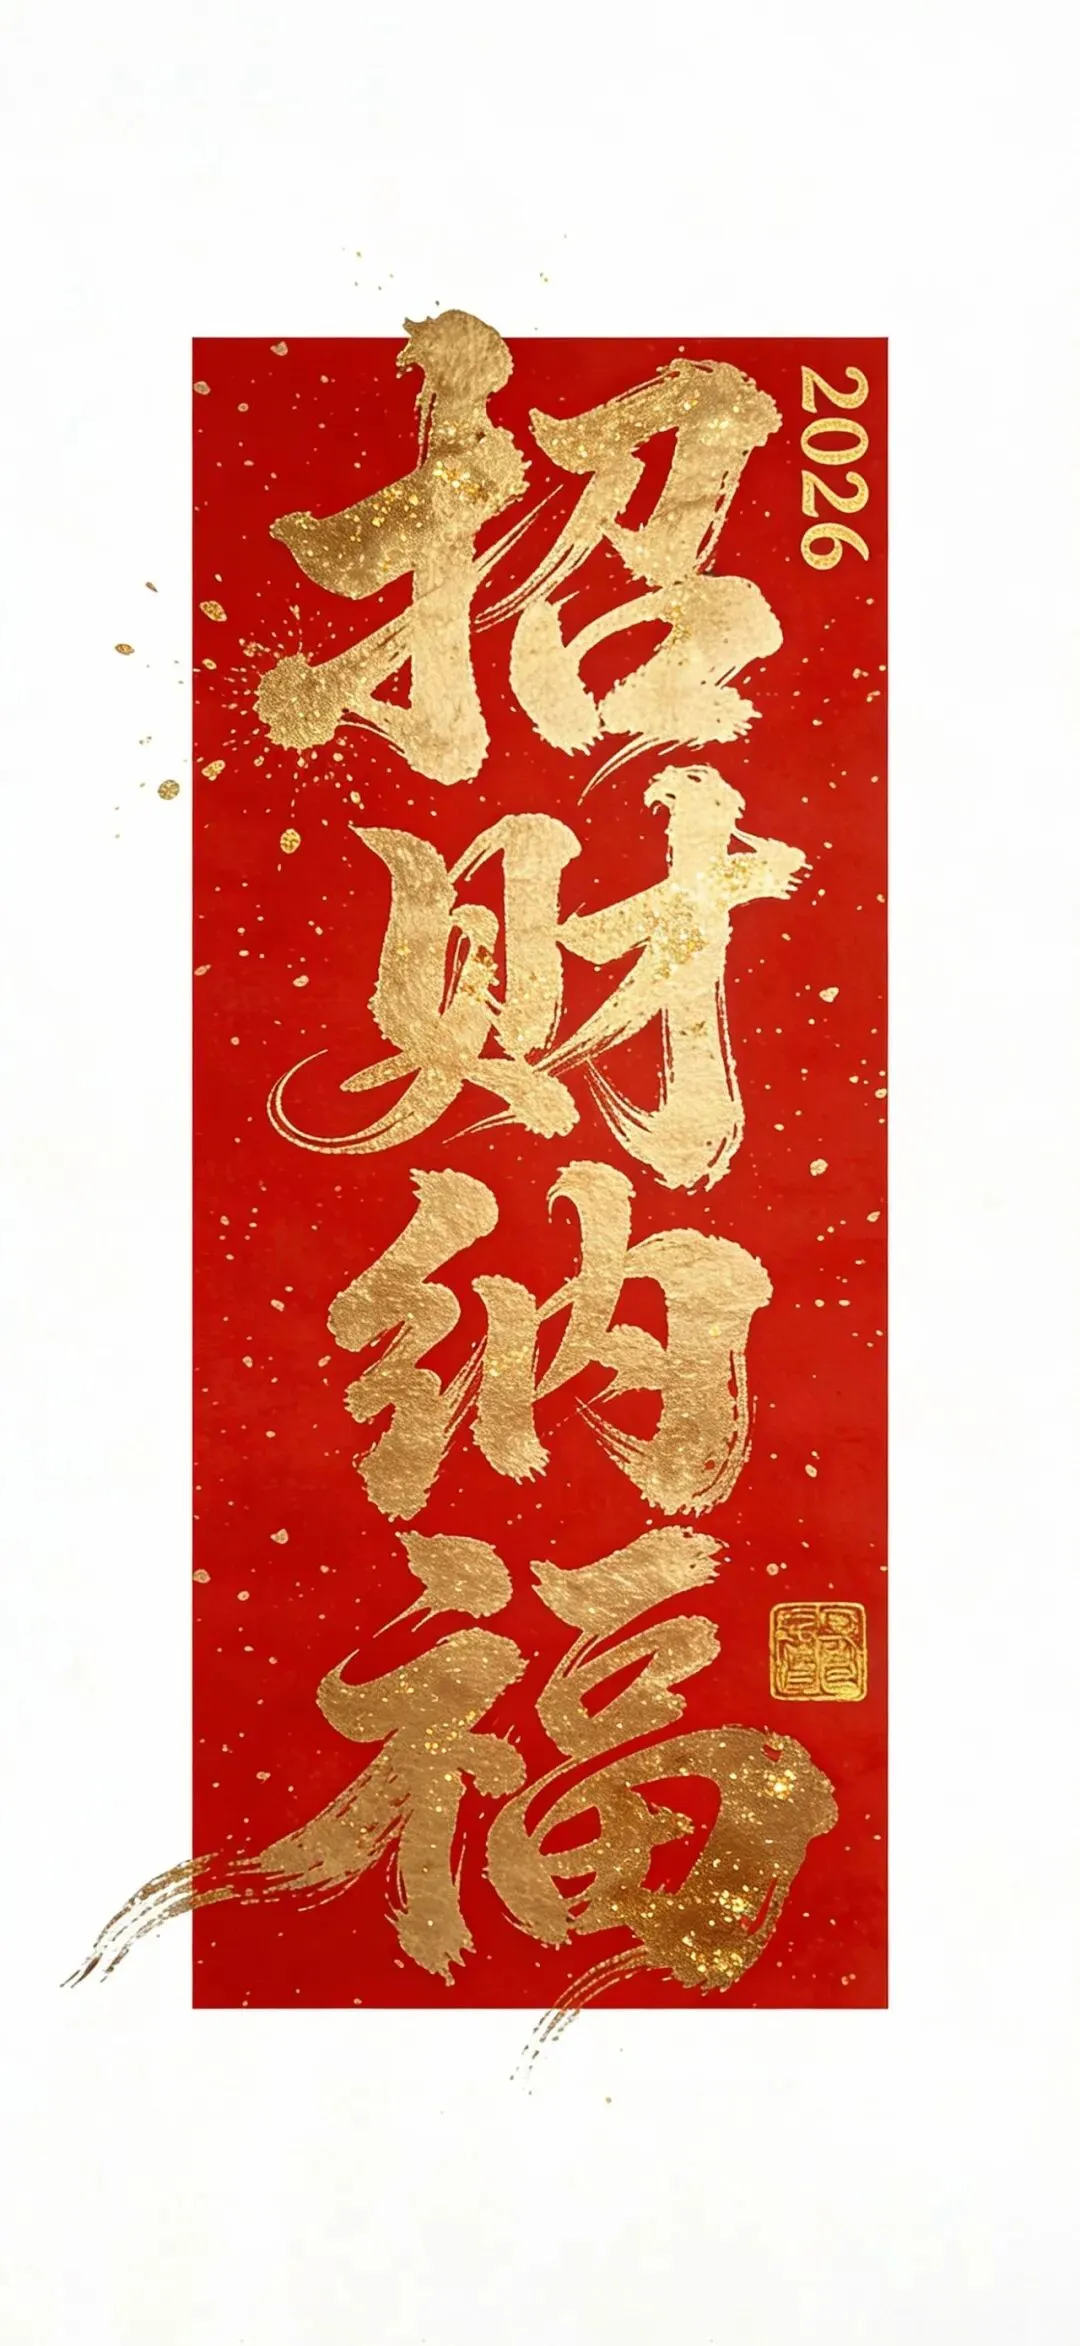 招财纳福
2026